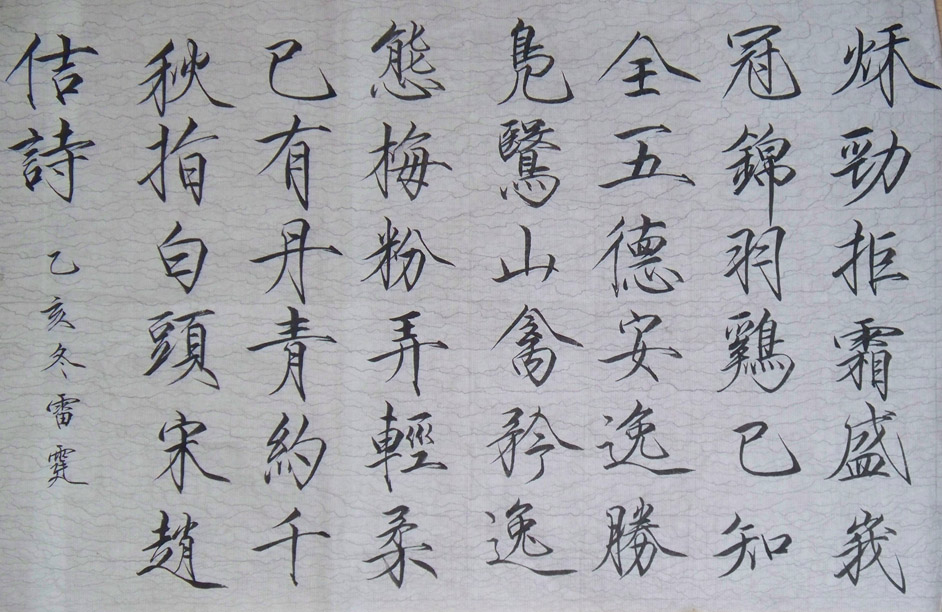 秌勁拒霜盛峩
冠錦羽鷄已知
全五德安逸勝
鳧鷖山禽矜逸
態梅粉弄輕柔
已有丹青約千
秋指白頭宋趙
佶詩
乙亥冬雷霓